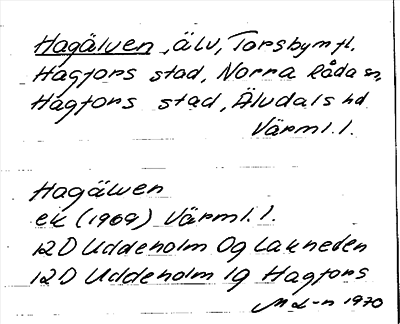 Hagälven, älv, Torsby m.fl.
Hagfors stad, Norra Råda sn,
Hagfors stad, Älvdals hd
Värml. l.
Hagälven
ek (1969) Värml. l.
12D Uddeholm 0g Lakneden
12D Uddeholm 1g Hagfors
M L-n 1970